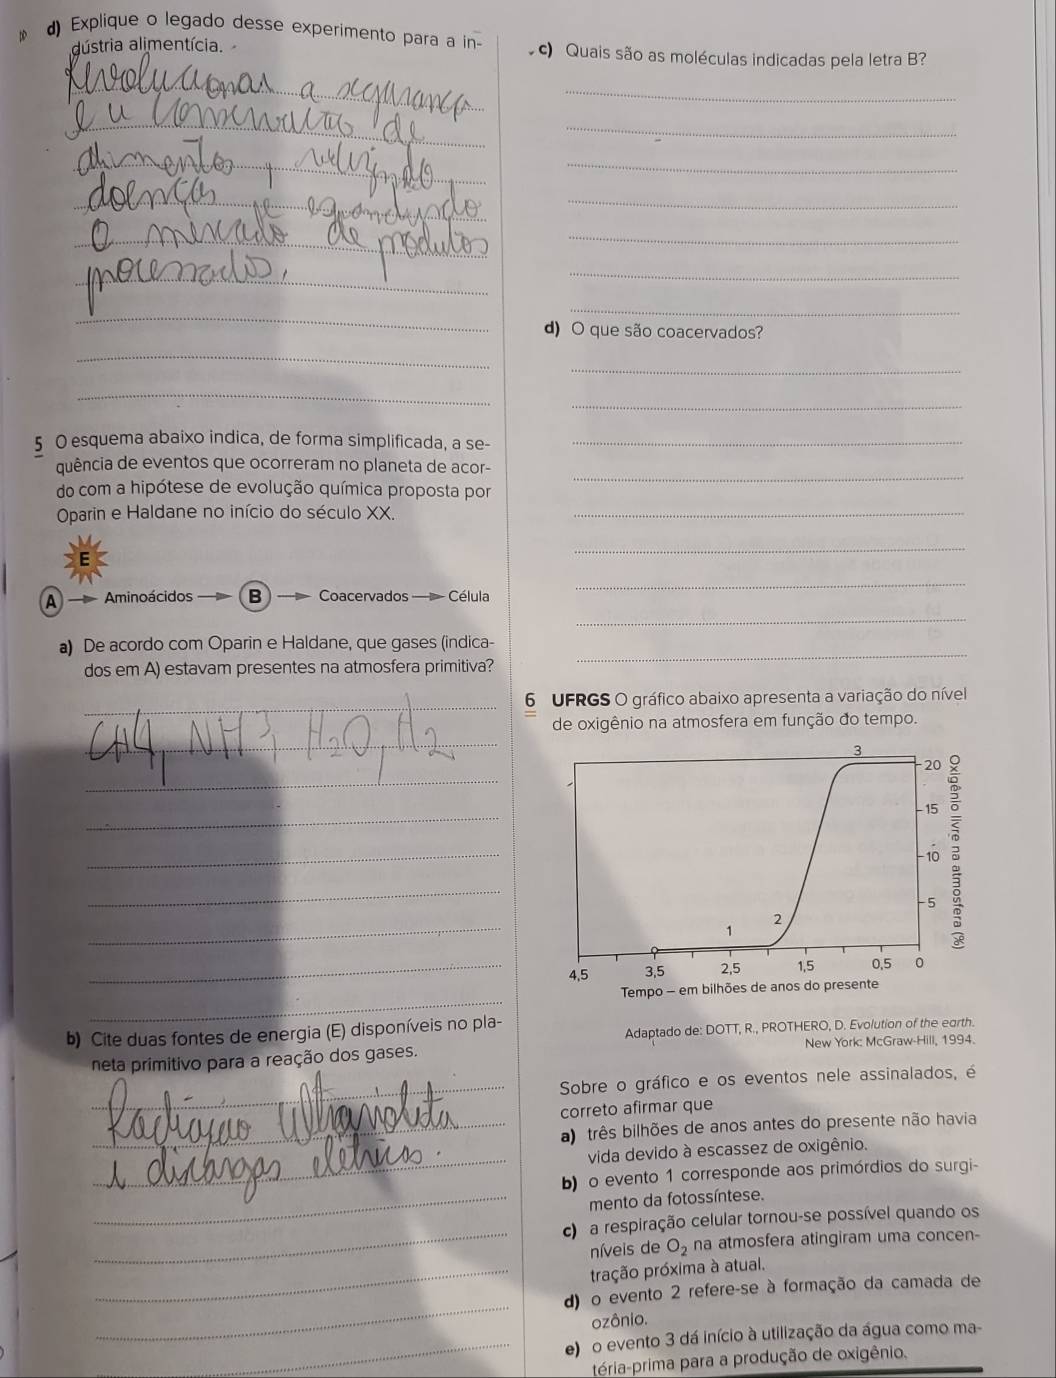 d) Explique o legado desse experimento para a in-
dústria alimentícia.
a
de
alimentos,
doenças
o mercado de produtos
processados,
5 O esquema abaixo indica, de forma simplificada, a se-
quência de eventos que ocorreram no planeta de acor-
do com a hipótese de evolução química proposta por
Oparin e Haldane no início do século XX.
E
A Aminoácidos B Coacervados Célula
a) De acordo com Oparin e Haldane, que gases (indica-
dos em A) estavam presentes na atmosfera primitiva?
CH4, NH3, H2O, H2
b) Cite duas fontes de energia (E) disponíveis no pla-
neta primitivo para a reação dos gases.
Radiação Ultravioleta
elétricas.
c) Quais são as moléculas indicadas pela letra B?
d) O que são coacervados?
6 UFRGS O gráfico abaixo apresenta a variação do nível
de oxigênio na atmosfera em função do tempo.
3
20
15
10
5
2
1
4,5 3,5 2,5 1,5 0,5 0
Oxigênio livre na atmosfera (%)
Tempo – em bilhões de anos do presente
Adaptado de: DOTT, R., PROTHERO, D. Evolution of the earth.
New York: McGraw-Hill, 1994.
Sobre o gráfico e os eventos nele assinalados, é
correto afirmar que
a) três bilhões de anos antes do presente não havia
vida devido à escassez de oxigênio.
b) o evento 1 corresponde aos primórdios do surgi-
mento da fotossíntese.
c) a respiração celular tornou-se possível quando os
níveis de O₂ na atmosfera atingiram uma concen-
tração próxima à atual.
d) o evento 2 refere-se à formação da camada de
ozônio.
e) o evento 3 dá início à utilização da água como ma-
téria-prima para a produção de oxigênio.